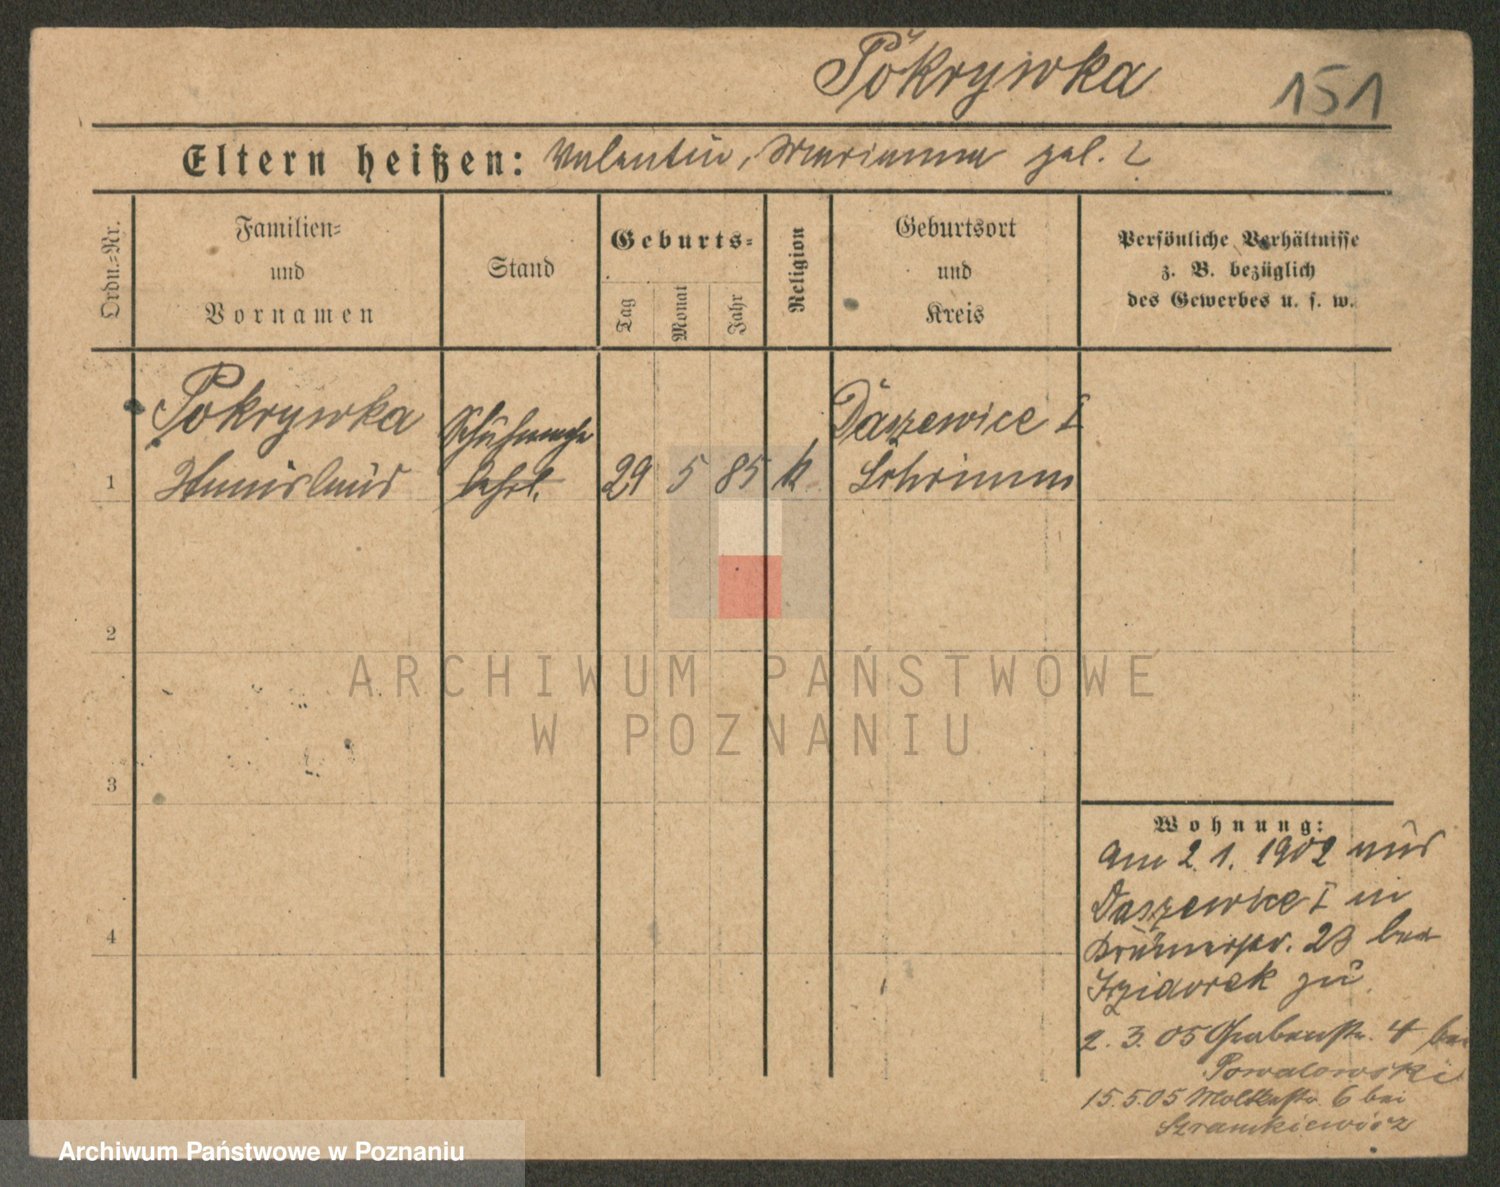 Pokrywka 151
Eltern heißen: Valentin, Marianna gel. ?
Ordn.=Nr.
Familien=
und
Vornamen
Stand
Geburts=
Tag
Monat
Jahr
Religion
Geburtsort
und
Kreis
Persönliche Verhältnisse
z. B. bezüglich
des Gewerbes u. s. w.
Pokrywka Daszewice I
1 Stanislaus 29 5 85 k. Schrimm
2
ARCHIWUM PAŃSTWOWE
W POZNANIU
3
Wohnung:
Am 2.1. 1902 aus
Daszewice I in
23 bei
zu
4
2.3.05 Grabenstr. 4 bei
Powalowski
15.5.05 Moltkestr. 6 bei
Szramkiewicz
Archiwum Państwowe w Poznaniu